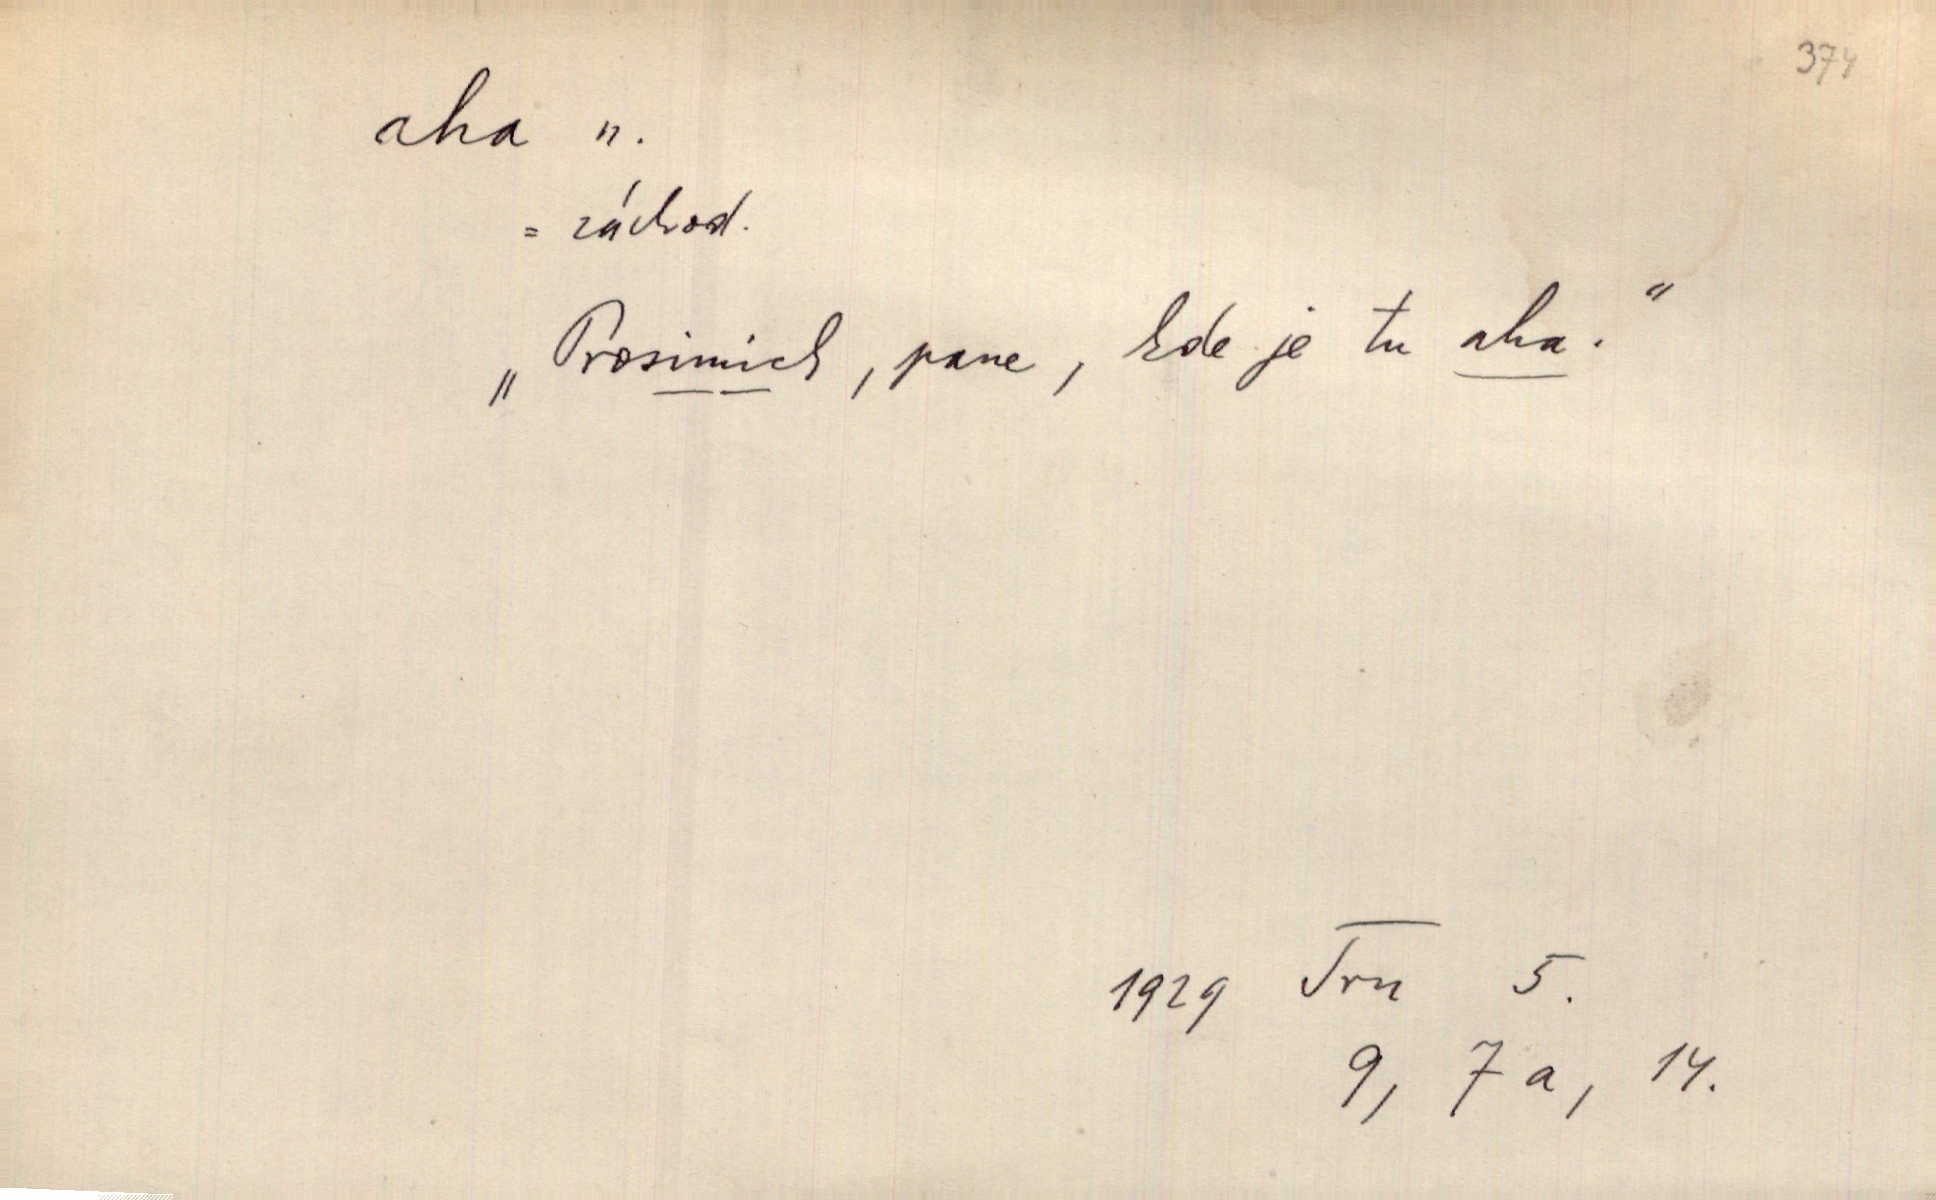 374
aha n.
= záchod.
„Prosimich, pane, kde je tu aha.“
1929 Trn 5.
9, 7a, 14.